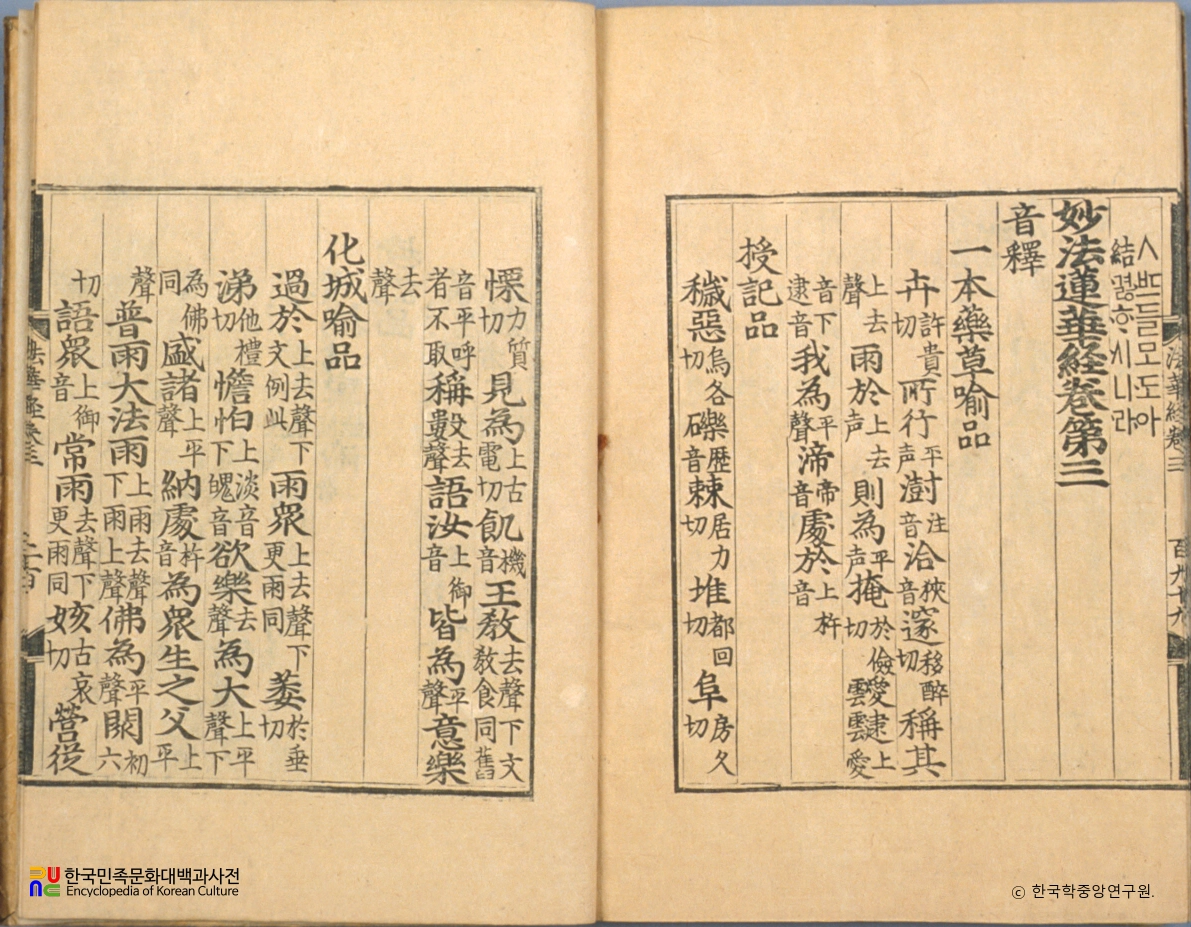 法華経卷三 百九十九
ㅅᄠᅳ들모도아
結겷ᄒᆞ시니라
妙法蓮華経卷第三
音釋
一本藥草喻品
卉許貴切所行平声澍注音洽狹音邃移醉切稱其
上去聲雨於上去声則為平声掩於儉切靉靆上愛
音下逮音我為平聲渧帝音處於上杵音
授記品
穢惡烏各切礫歷音棘居力切堆都回切阜房久切
慄力質切見為上古電切飢機音王敎去聲下文敎食同舊
音平呼者不取稱量去聲語汝上御音皆為平聲意樂
去聲
化城喻品
過於上去聲下文例此雨眾上去聲下更雨同萎於垂切
涕他禮切憺怕上淡音下魄音欲樂去聲為大上平聲下
為佛同盛諸上平聲納處杵音為眾生之父上平
聲普雨大法雨上雨去聲下雨上聲佛為平聲閦初六
切語眾上御音常雨去聲下更雨同姟古哀切營從
法華經卷三 二百
한국민족문화대백과사전
Encyclopedia of Korean Culture
© 한국학중앙연구원.